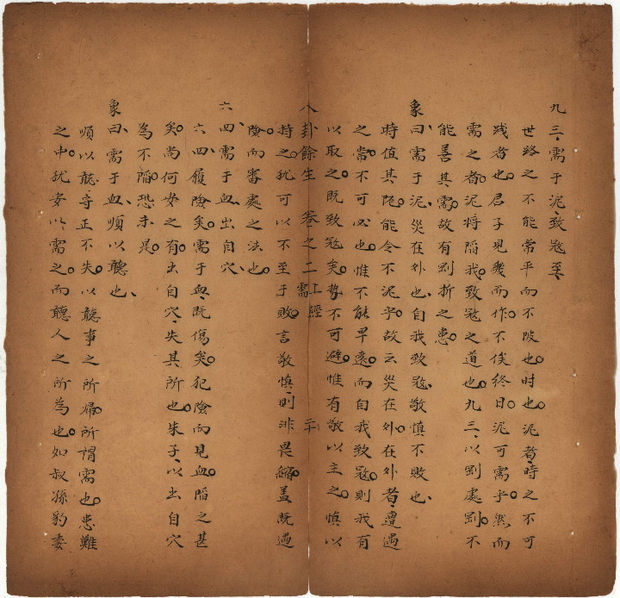 九三、需于泥、致寇至、
世路之不能常平而不陂也。時也。泥者、時之不可
踐者也。君子見幾而作。不俟終日。泥可需乎。然而
需之者。泥將陷我。致寇之道也。九三、以剛處剛。不
能善其需。故有剝折之患。
象曰、需于泥、災在外也、自我致寇、敬慎不敗也、
時值其阨。能令不泥乎。故云災在外。在外者、遭遇
之當。不可必也。惟不能早遠。而自我致寇。則我有
以取之。既致寇矣。寧不可避。惟有敬以主之。慎以
八卦餘生 卷之二 上經 需 二十
持之。犹可以不至于敗。言敬慎則非畏縮。盖既過
險。而審處之法也。
六四、需于血、出自穴、
六四、履險矣。需于血、既傷矣。犯險而見血。陷之甚
矣。尚何安之有。出自穴、失其所也。朱子、以出自穴
為不陷。恐未是。
象曰、需于血、順以聽也、
順以聽、守正不失。以聽事之所歸。所謂需也。患難
之中。犹安以需之。而聽人之所為也。如叔孫豹妻